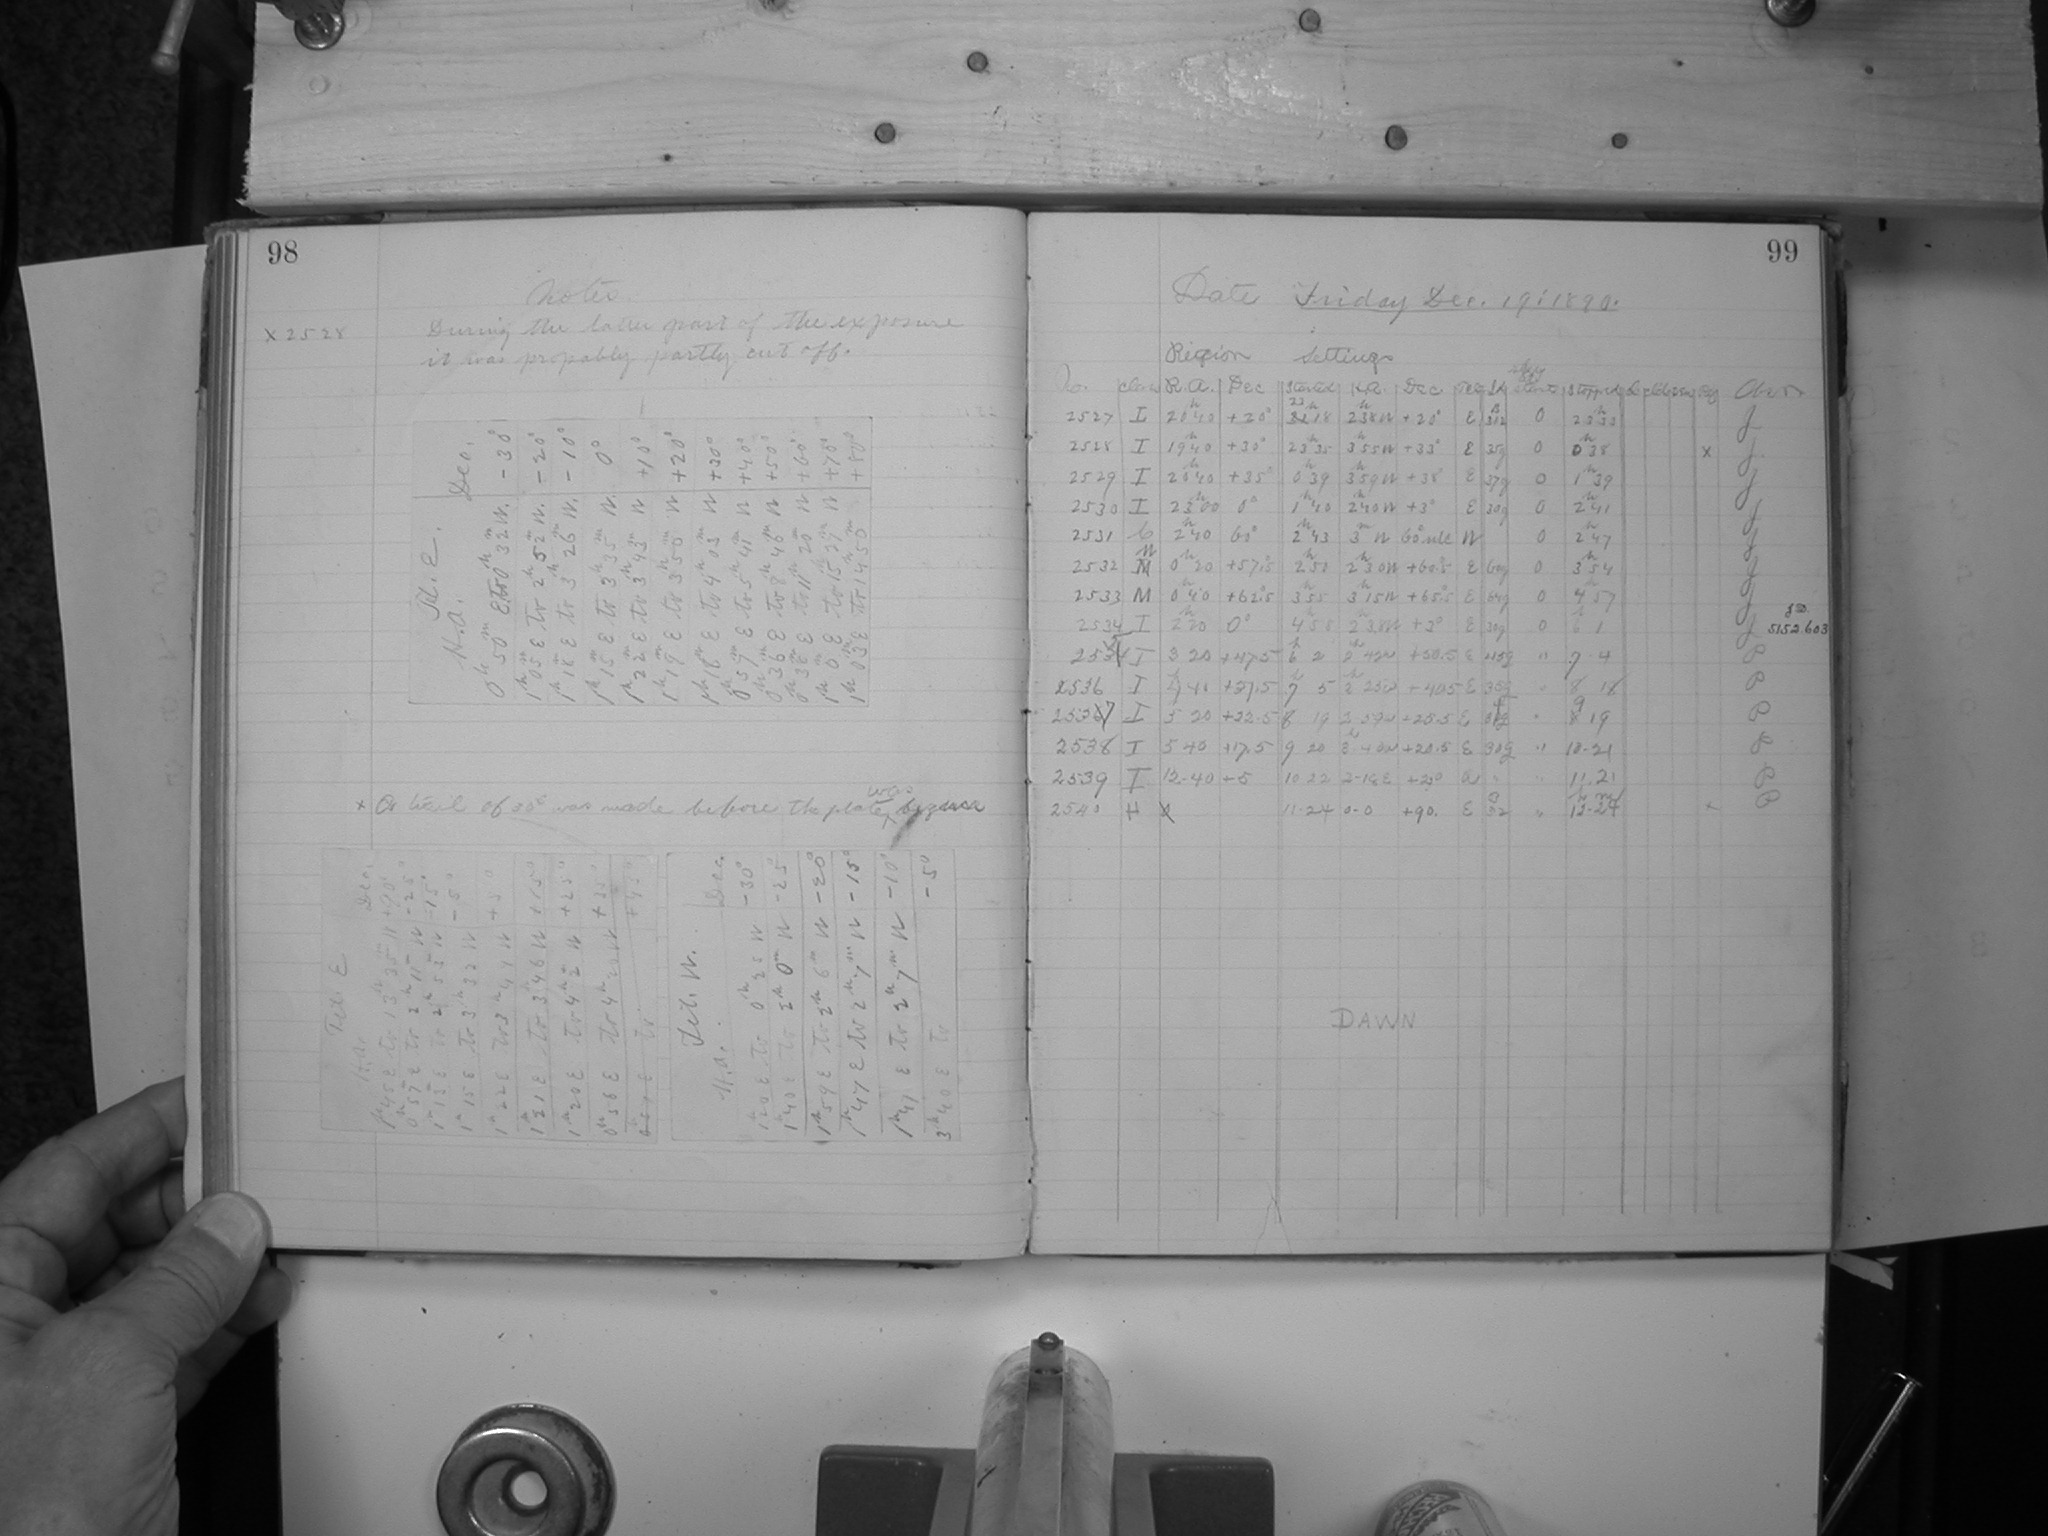 98
Notes
x 2528 During the latter part of the exposure
it was propably partly cut off.
Tel. E.
H.a. Dec.
0h 50m E to 0h 32m W. - 30°
1h 05m E to 2h 52m W. - 20°
1h 18m E to 3h 26m W. - 10°
1h 15m E to 3h 35m W. 0°
1h 22m E to 3h 43m W +10°
1h 19m E to 3h 50m W +20°
1h 18m E to 4h 03m W +30°
0h 59m E to 5h 41m W +40°
0h 36m E to 8h 46m W +50°
0h 38m E to 11h 20m W +60°
1h 0m E to 15h 27m W +70°
1h 03m E to 14h 50m +80°
x A trail of 30s was made before the plate was
Tel. E
H.a. Dec.
1h 45m E to 13h 35m W +90°
0h 57m E to 2h 11m W -25°
1h 13m E to 2h 53m W -15°
1h 15 E to 3h 32 W - 5°
1h 22 E to 3h 41 W +5°
1h 21 E to 3h 46 W +15°
1h 20 E to 4h 2m W +25°
0h 56 E to 4h 22 W +35°
to +45°
Tel. W.
H.a. Dec.
1h 20 E to 0h 25 W -30°
1h 40 E to 2h 0m W -25°
1h 59 E to 2h 6m W -20°
1h 47 E to 2h 7m W -15°
1h 41 E to 2h 7m W -10°
3h 40 E to -5°
99
Date Friday Dec. 19, 1890.
Region Settings
No. Class R.A. Dec Started H.A. Dec. Stopped Obser
2527 I 20h 40 +20° 23h 18 2h 38 W +20° E 0 23h 33 J
2528 I 19h 40 +30° 23h 35 3h 55 W +33° E 35g 0 0h 38 x J
2529 I 20h 40 +35° 0h 39 3h 59 W +38° E 37g 0 1h 39 J
2530 I 23h 00 0° 1h 40 2h 40 W +3° E 30g 0 2h 41 J
2531 C 2h 40 60° 2h 43 3m W 60° W 0 2h 47 J
2532 M 0h 20 +57.5 2h 50 2h 30 W +60.5 E 60g 0 3h 54 J
2533 M 0h 40 +62.5 3h 55 3h 15 W +65.5 E 64g 0 4h 57 J
2534 I 2h 20 0° 4h 58 2h 38 W +3° E 30g 0 6h 1 J J.D. 5152.603
I 3 20 +47.5 6h 2 2h 42 W +50.5 E " 7 4 P
2536 I 4h 41 +37.5 7h 5 +40.5 E " 8 18 P
2537 I 5 20 +22.5 8 19 2 59 W +25.5 E " 9 19 P
2538 I 5 40 +17.5 9 20 3h 40 W +20.5 E 30g " 10-21 P
2539 I 12-40 +5 10 22 2-18 E +20 " 11.21 P
2540 H 11-24 0-0 +90. E " 12-24 x P
DAWN